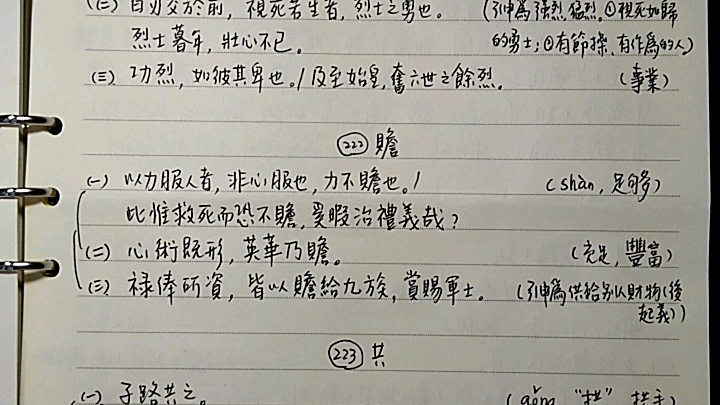 (二) 白刃交於前，視死若生者，烈士之勇也。 (引申為強烈, 猛烈. ①視死如歸
烈士暮年，壯心不已。 的勇士; ②有節操、有作為的人)
(三) 功烈，如彼其卑也。/ 及至始皇，奮六世之餘烈。 (事業)
222 贍
(一) 以力服人者，非心服也，力不贍也。/ (shàn, 足夠)
此惟救死而恐不贍，奚暇治禮義哉？
(二) 心術既形，英華乃贍。 (充足, 豐富)
(三) 祿俸所資，皆以贍給九族，賞賜軍士。 (引申為供給別人財物(後
起義))
223 共
(一) 子路共之。 (gǒng "拱" 拱手)